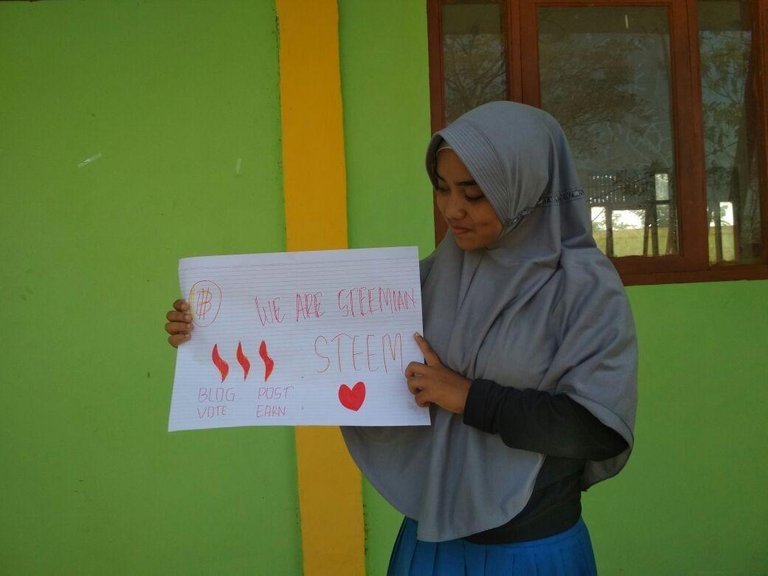 WE ARE STEEMIAN
STEEM
BLOG POST
VOTE EARN